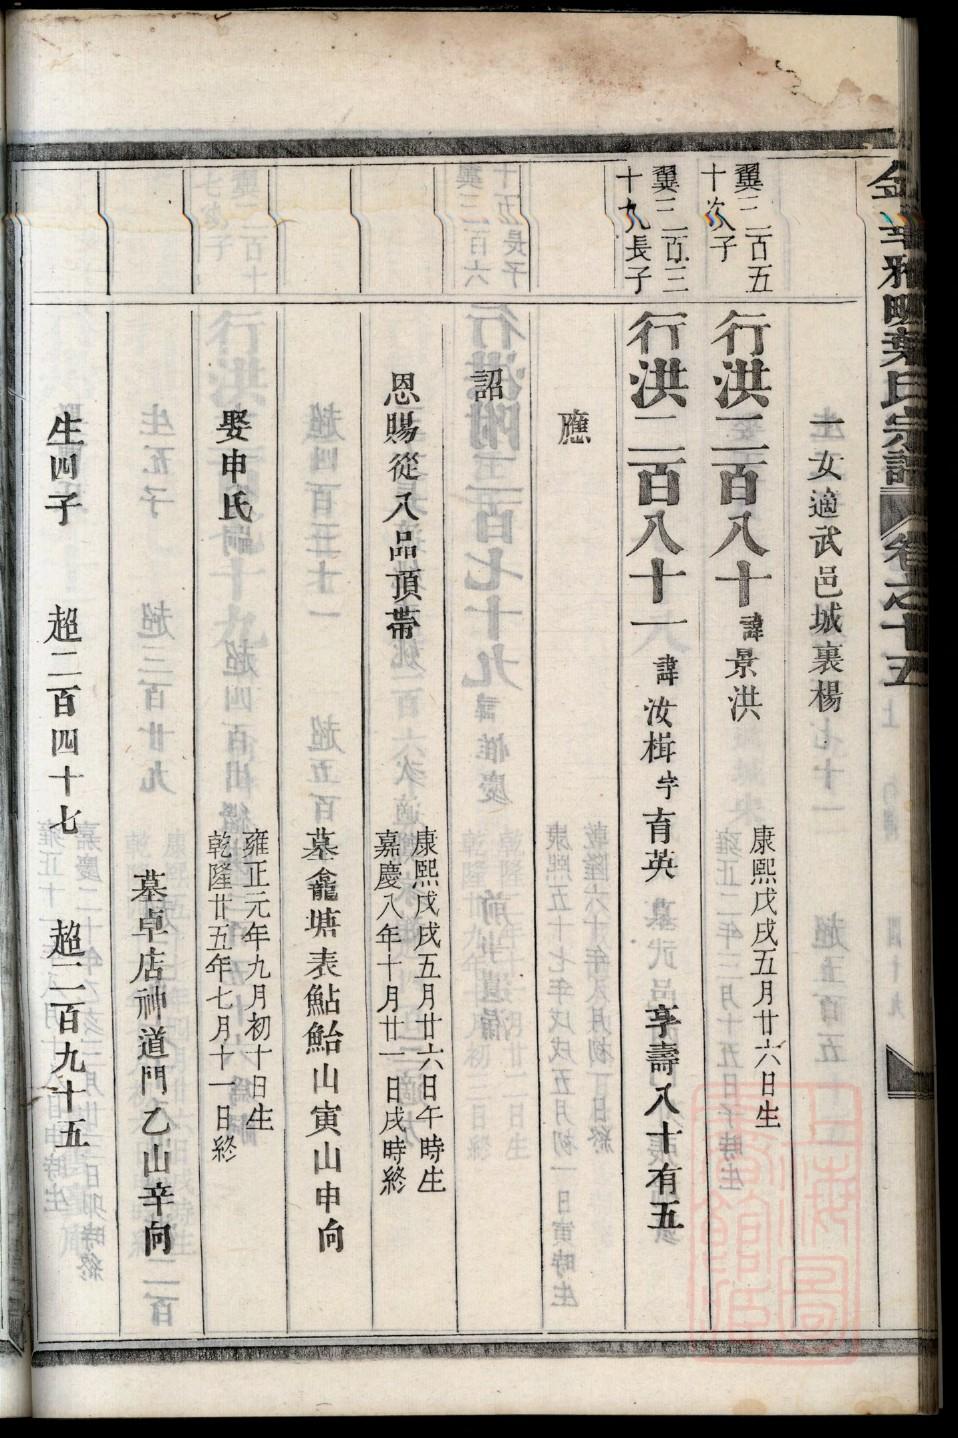 葉氏宗譜
卷之十五
一女適武邑城裏楊
翼三百五
十次子
行洪三百八十諱景洪
康熙戊戌五月廿六日生
翼三百三
十九長子
行洪二百八十一諱汝楫字育英
享壽八十有五
應
詔
恩賜從八品頂帶
康熙戊戌五月廿六日午時生
嘉慶八年十月廿一日戌時終
墓龕塘表鮎鮐山寅山申向
娶申氏
雍正元年九月初十日生
乾隆廿五年七月十一日終
墓卓店神道門乙山辛向
生四子 超二百四十七 超二百九十五